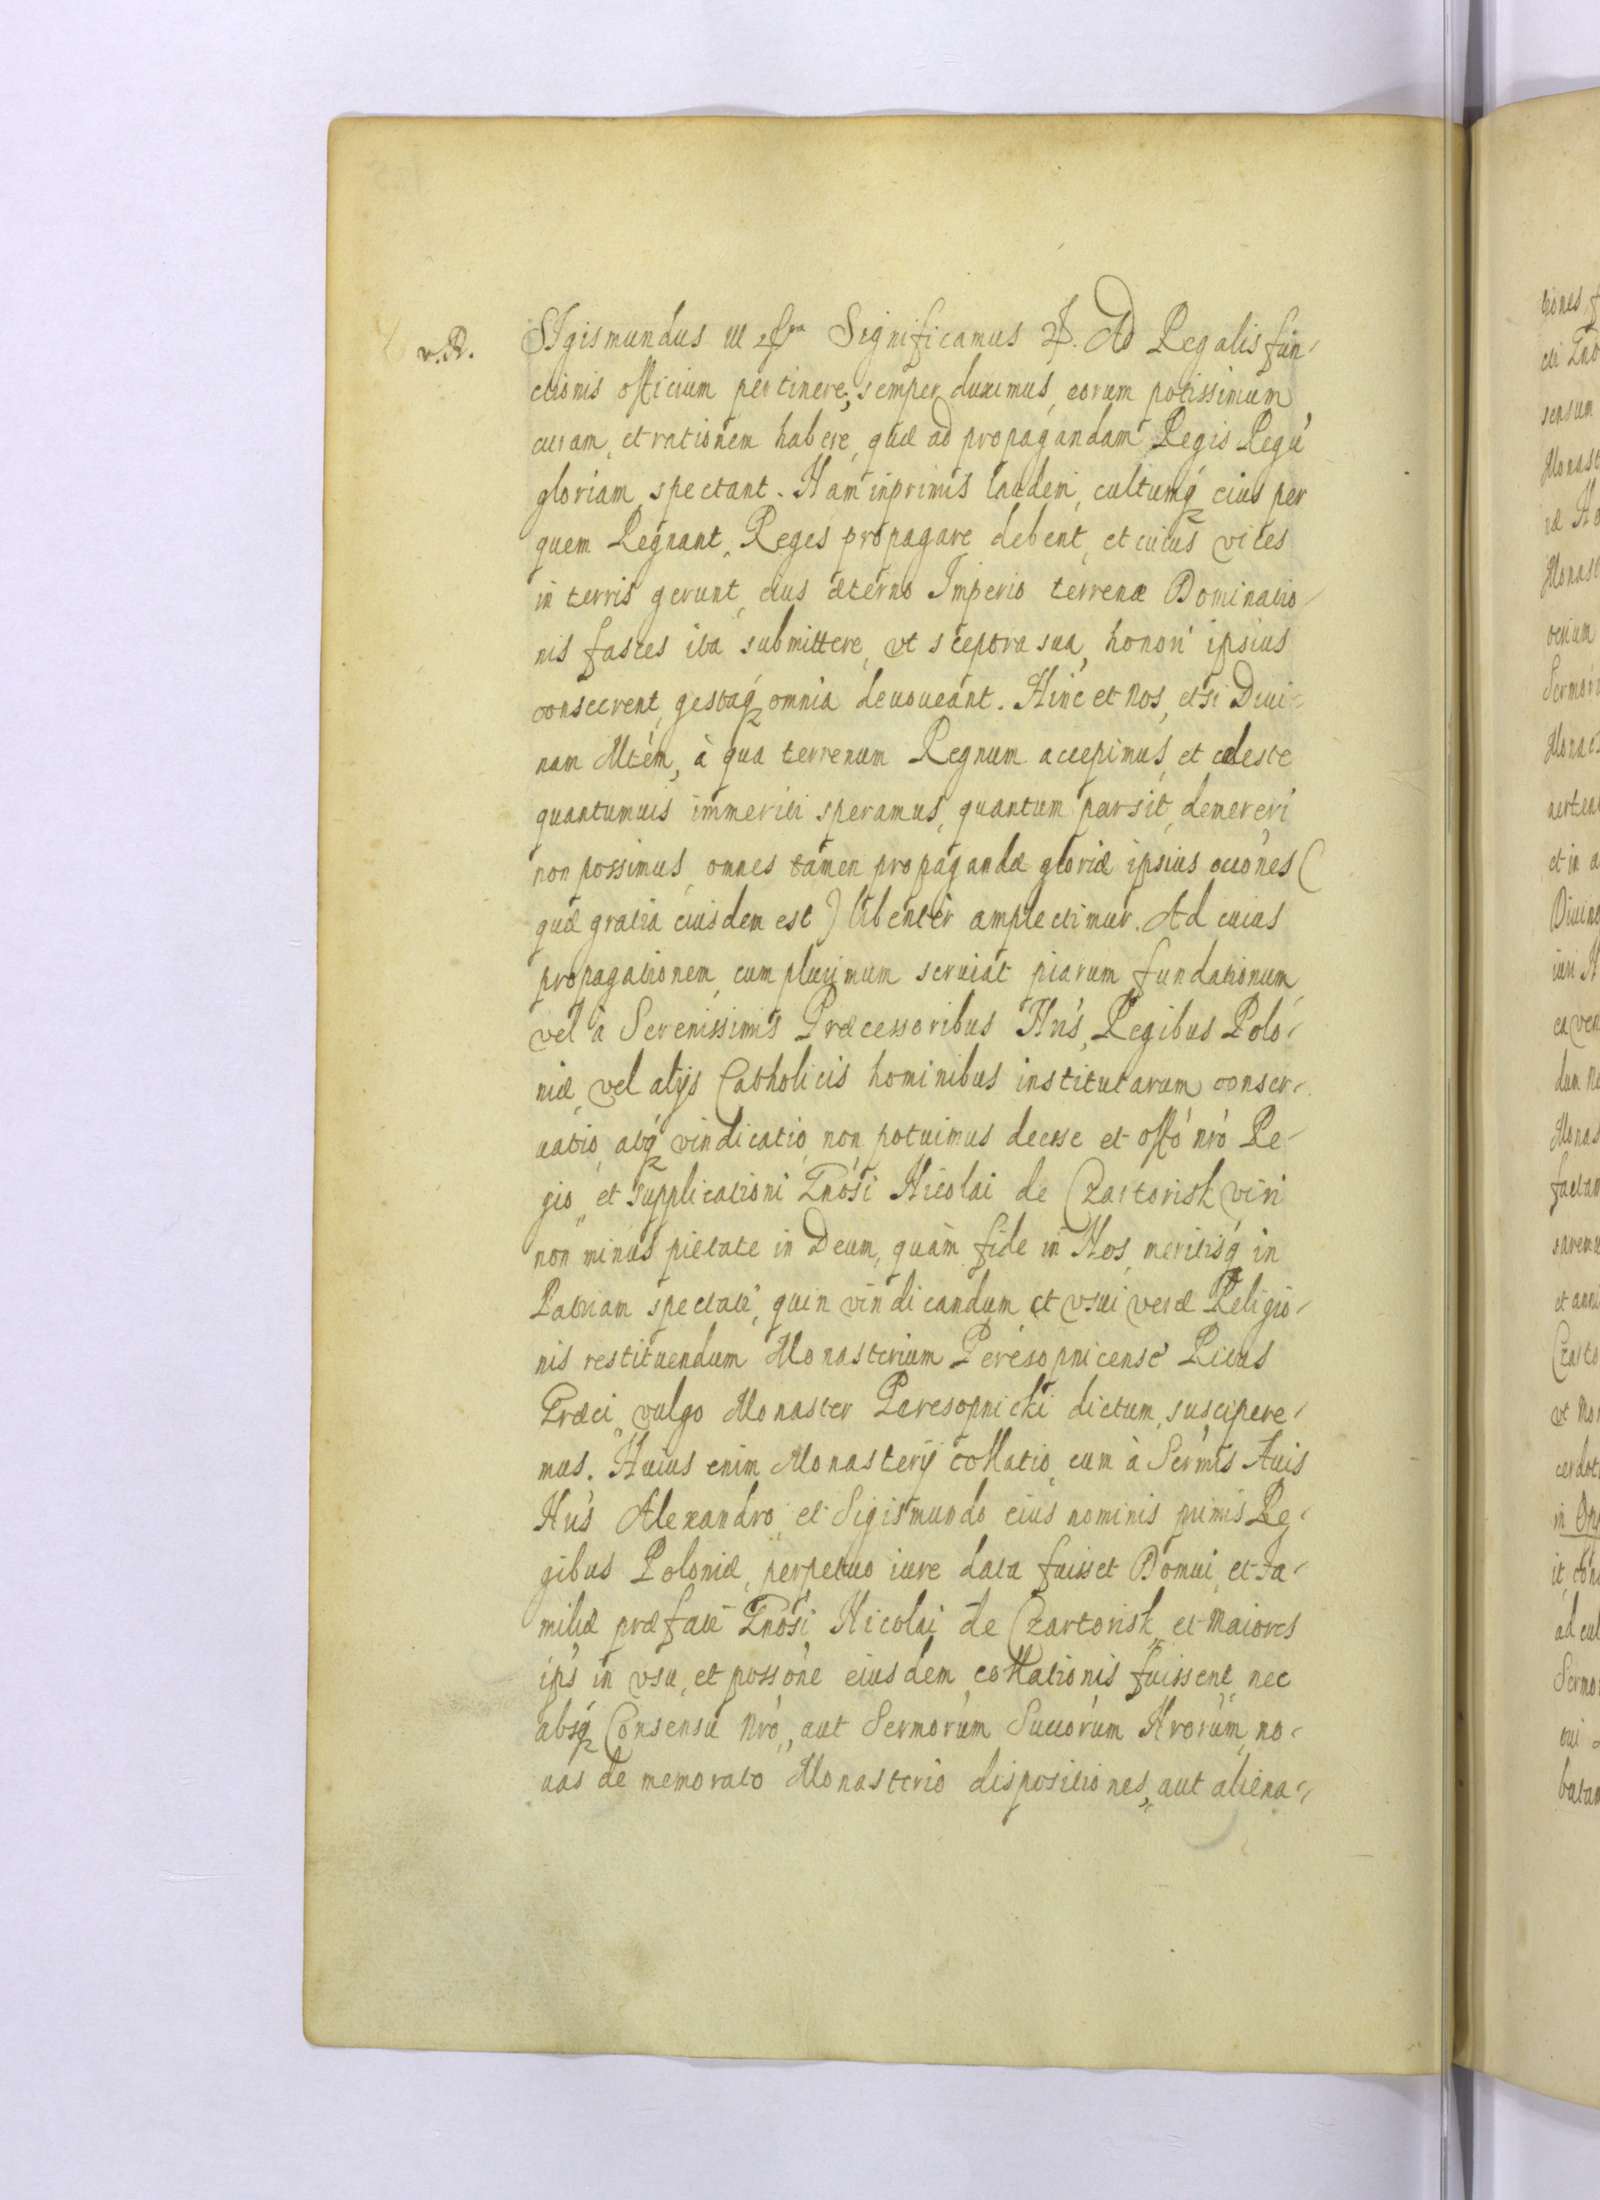 v. R. SIgismundus III Significamus Ad Regalis fun-
ctionis officium pertinere, semper duximus, eorum potissimum
curam, et rationem habere, quæ ad propagandam Regis Regũ
gloriam spectant. Nam inprimis laudem, cultumq; eius per
quem Regnant, Reges propagare debent, et cuius vices
in terris gerunt, eius æterno Imperio terrenæ Dominatio-
nis fasces ita submittere, vt sceptra sua, honori ipsius
consecrent, gestaq; omnia deuoueant. Hinc et Nos, etsi Diui-
nam Mtem, à qua terrenum Regnum accepimus, et cæleste
quantumuis immeriti speramus, quantum par sit, demereri
non possimus, omnes tamen propagandæ gloriæ ipsius occones (
quæ gratia eiusdem est) libenter amplectimur. Ad cuius
propagationem, cum plurimum seruiat piarum fundationum
vel à Serenissimis Præcessoribus Nris, Regibus Polo-
niæ, vel alijs Catholicis hominibus institutarum conser-
uatio, atq; vindicatio, non potuimus deesse et offo nro Re-
gio, et supplicationi Gnosi Nicolai de Czartorisk viri
non minus pietate in Deum, quàm fide in Nos, meritisq; in
Patriam spectati, quin vindicandum, et vsui veræ Religio-
nis restituendum Monasterium Peresopnicense Ritus
Græci, vulgo Monaster Peresopnicki dictum, suscipere-
mus. Huius enim Monasterij collatio, cum à Sermis Auis
Nris Alexandro, et Sigismundo eius nominis primis Re-
gibus Poloniæ, perpetuo iure data fuisset Domui, et fa-
miliæ præfati Gnosi Nicolai de Czartorisk, et Maiores
ips in vsu, et possone eiusdem collationis fuissent, nec
absq; Consensu Nro, aut Sermorum Succorum Nrorum, no-
uas de memorato Monasterio dispositiones, aut aliena-